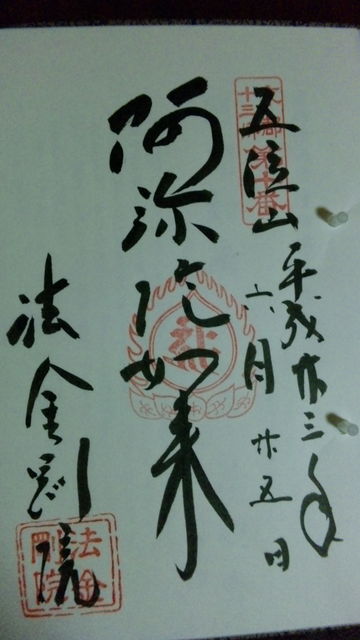 平成廿三年
六月廿五日
五位山
阿弥陀如来
法金剛院
法金
剛院